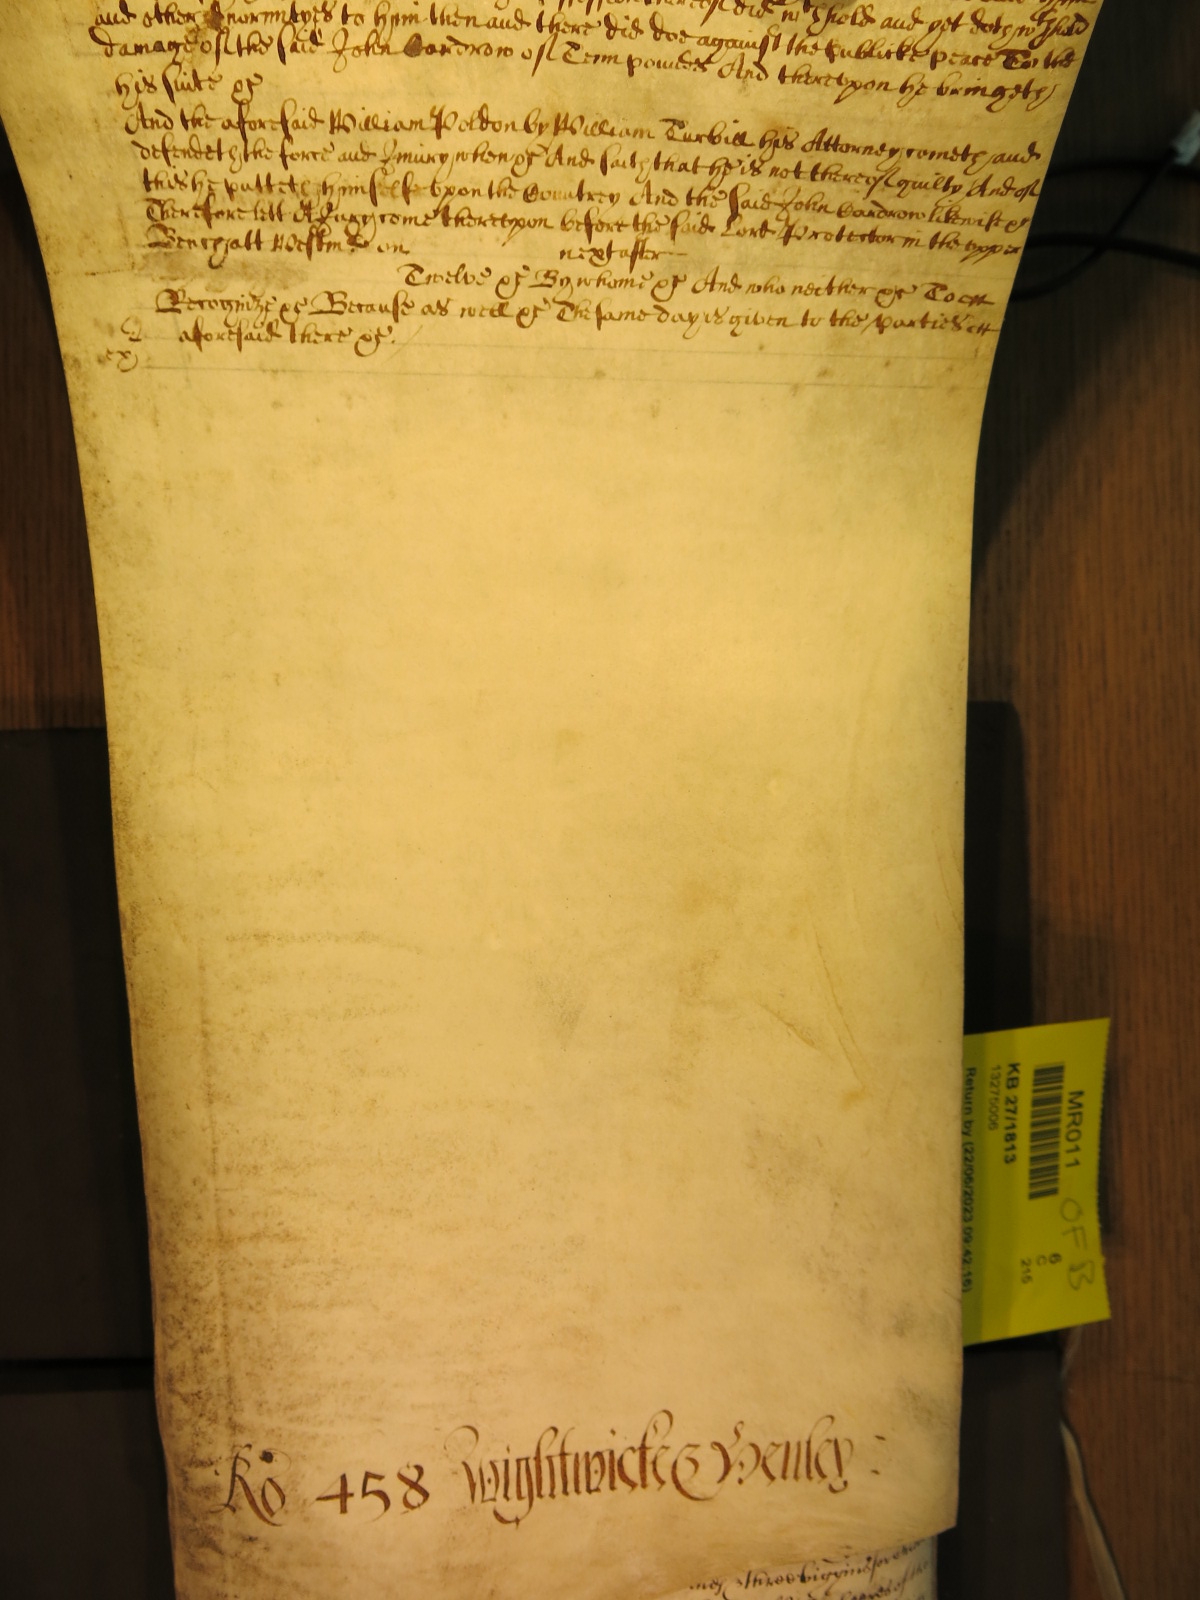 and other Enormityes to him then and there did doe against the Publicke Peace To the
damage of the said John Cardrow of Tenn pounds And thereupon he bringeth
his suite &c
And the aforesaid William Poldon by William Turbill his Attorney cometh and
defendeth the force and Iniury when &c And saith that he is not thereof guilty And of
this he putteth himselfe upon the Countrey And the said John Cardrow likewise &c
Therefore lett A Jury come thereupon before the said Lord Protector in the upper
Bench att Westmr on next after
Twelve &c By whome &c And who neither &c To
Recognize &c Because as well &c The same day is given to the parties
aforesaid there &c.
Ro 458 Wightwicke & Henley
MR011
KB 27/1813
13275006
Return by (22/06/2023 09:42:16)
6
C
216
OF B